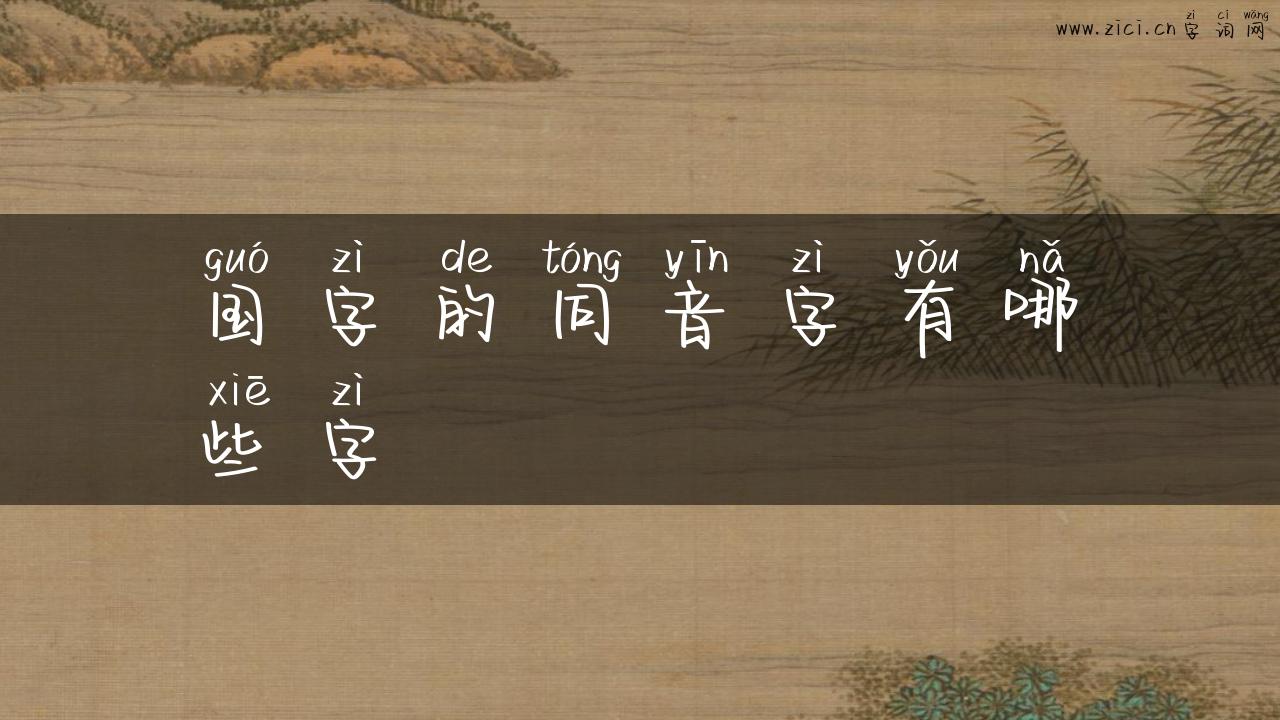 zì cí wǎng
www.zici.cn 字 词 网
guó zì de tóng yīn zì yǒu nǎ
国 字 的 同 音 字 有 哪
xiē zì
些 字